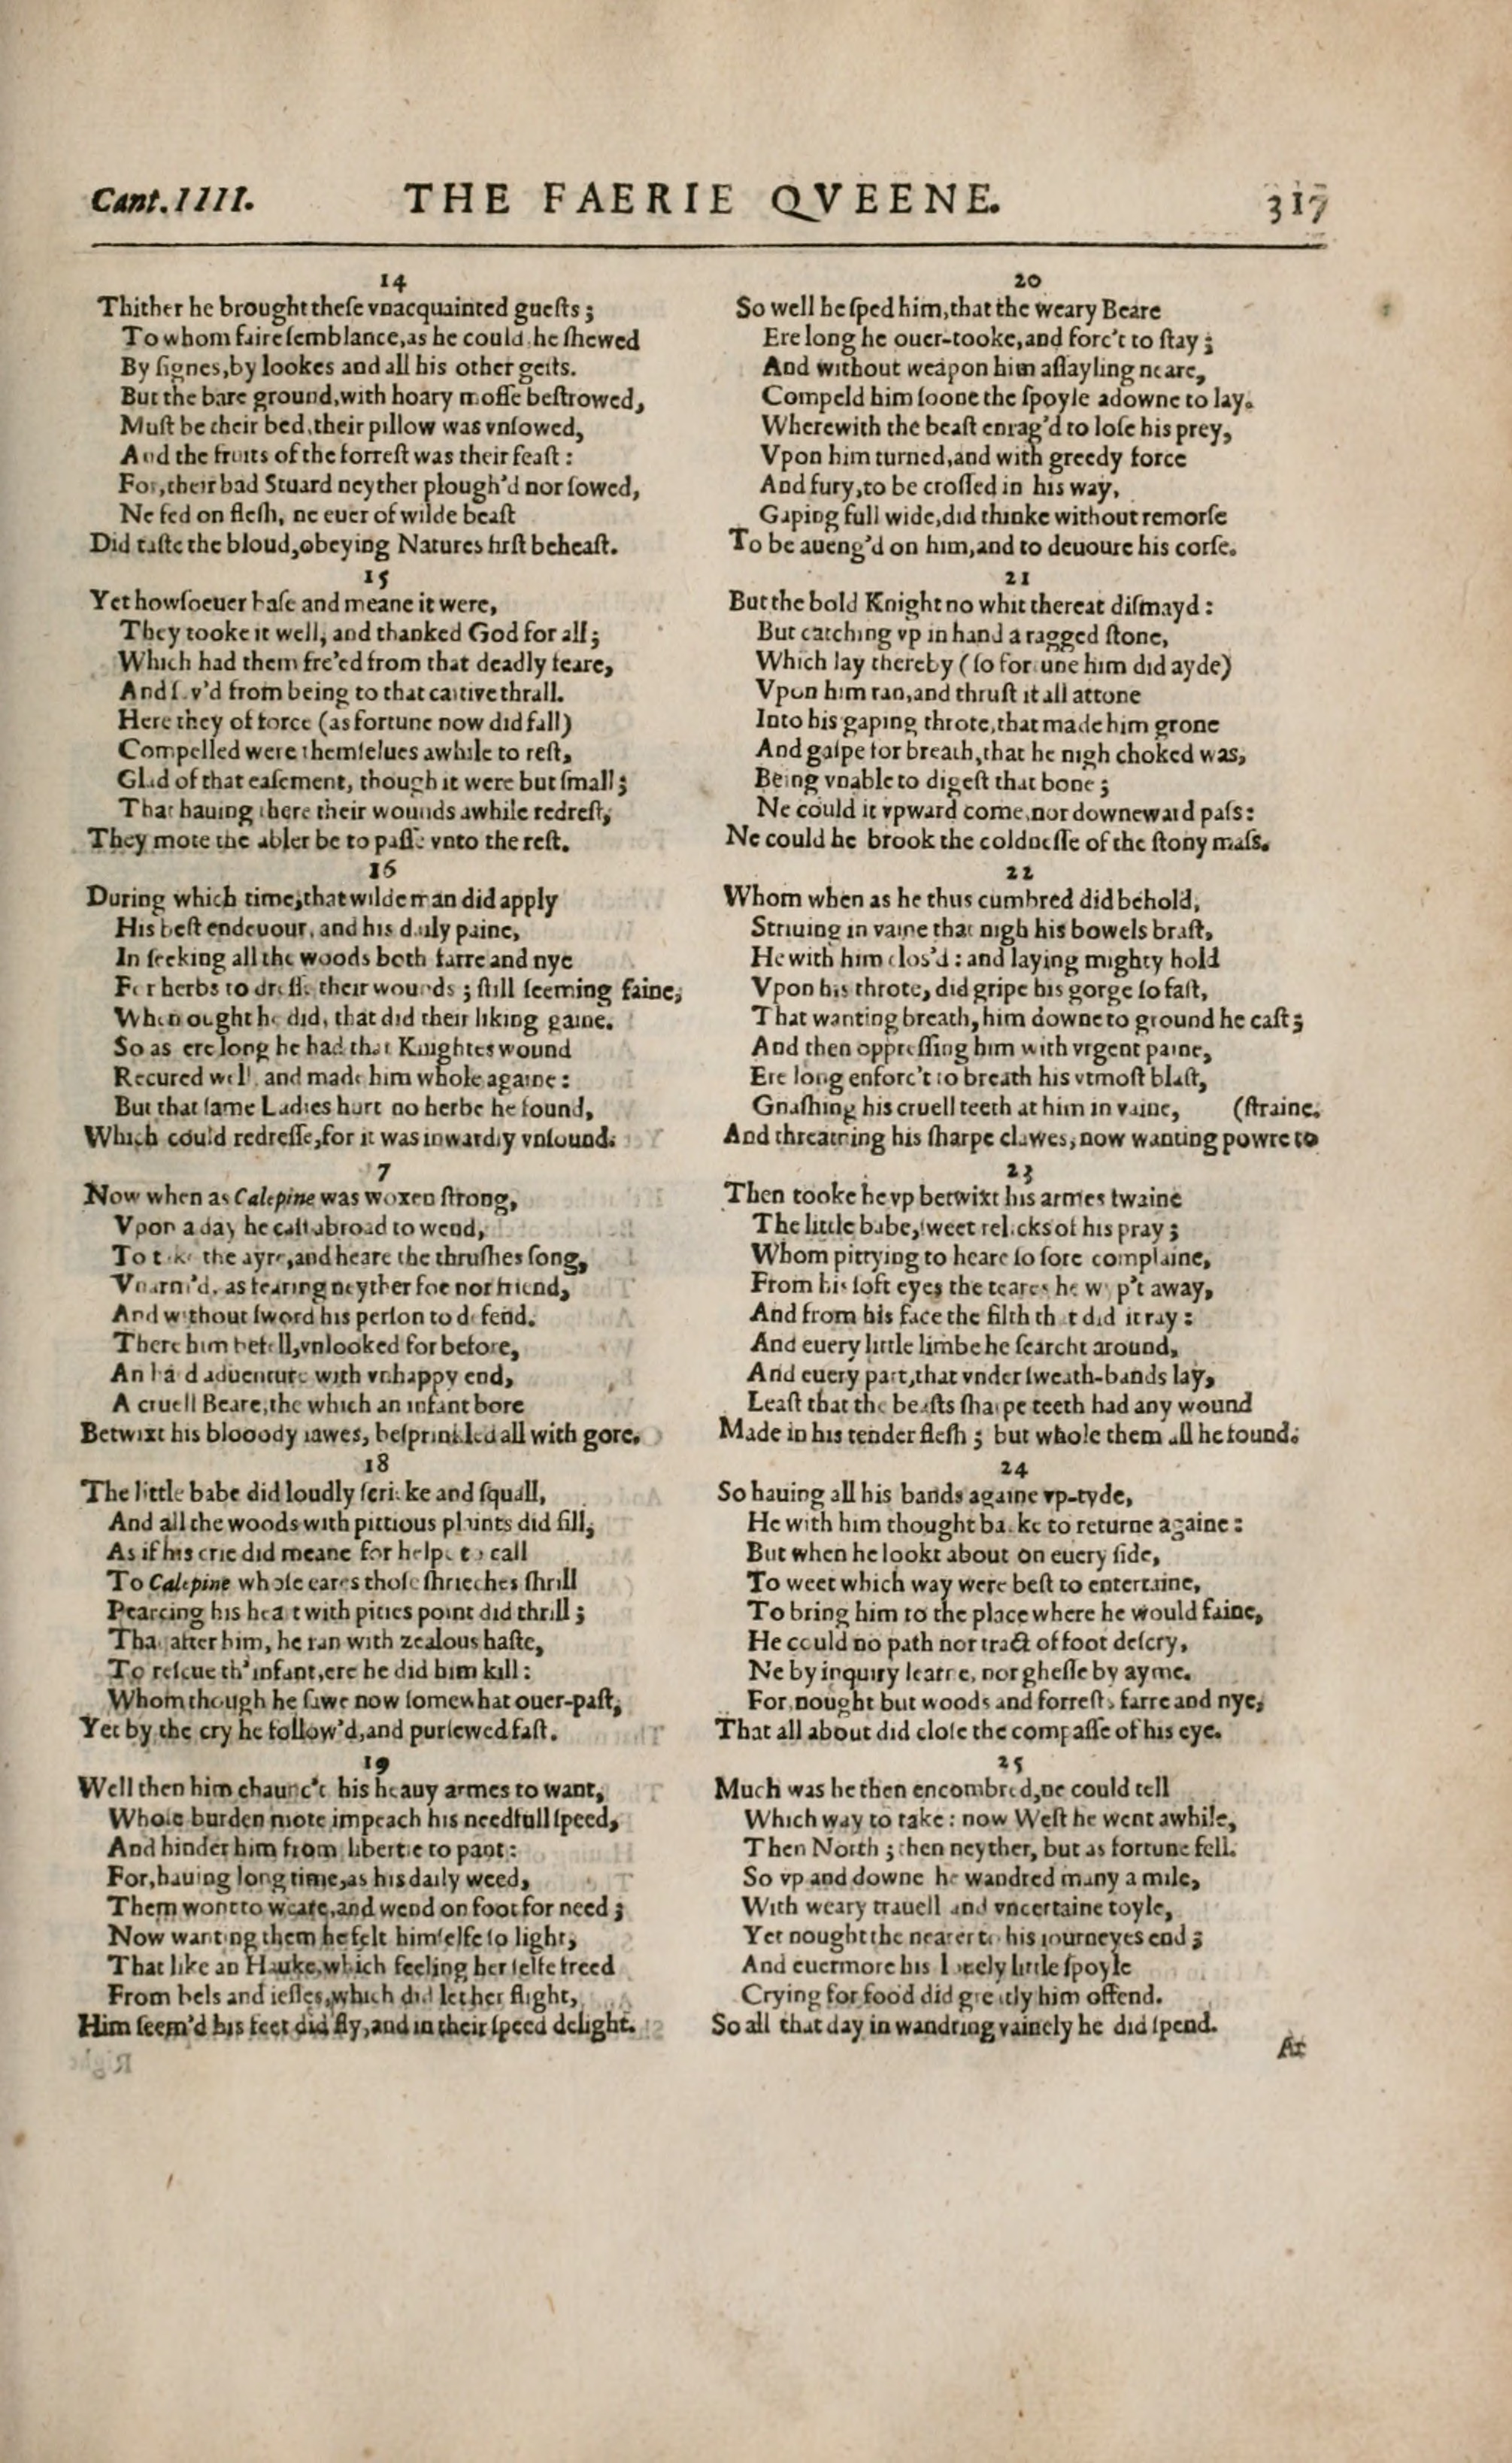 Cant. IIII. THE FAERIE QVEENE. 317
14
Thither he brought theſe vnacquainted gueſts;
To whom faire ſemblance, as he could, he ſhewed
By ſignes, by lookes and all his other geſts.
But the bare ground, with hoary moſſe beſtrowed,
Muſt be their bed, their pillow was vnſowed,
And the fruits of the forreſt was their feaſt:
For, their bad Stuard neyther plough'd nor ſowed,
Ne fed on fleſh, ne euer of wilde beaſt
Did taſte the bloud, obeying Natures firſt beheaſt.
15
Yet howſoeuer baſe and meane it were,
They tooke it well, and thanked God for all;
Which had them fre'ed from that deadly feare,
And ſav'd from being to that caitiue thrall.
Here they of force (as fortune now did fall)
Compelled were themſelues awhile to reſt,
Glad of that eaſement, though it were but ſmall;
That hauing there their wounds awhile redreſt,
They mote the abler be to paſſe vnto the reſt.
16
During which time, that wilde man did apply
His beſt endeuour, and his daily paine,
In ſeeking all the woods both farre and nye
For herbs to dreſſe their wounds; ſtill ſeeming faine,
When ought he did, that did their liking gaine.
So as ere long he had that Knightes wound
Recured well, and made him whole againe:
But that ſame Ladies hurt no herbe he found,
Which could redreſſe, for it was inwardly vnſound.
7
Now when as Calepine was woxen ſtrong,
Vpon a day he caſt abroad to wend,
To take the ayre, and heare the thruſhes ſong,
Vnarm'd, as fearing neyther foe nor friend,
And without ſword his perſon to defend.
There him befell, vnlooked for before,
An hard aduenture with vnhappy end,
A cruell Beare, the which an infant bore
Betwixt his blooody iawes, beſprinkled all with gore.
18
The little babe did loudly ſcrike and ſquall,
And all the woods with pittious plaints did fill,
As if his crie did meane for helpe to call
To Calepine whoſe eares thoſe ſhrieches ſhrill
Pearcing his heart with pities point did thrill;
That after him, he ran with zealous haſte,
To reſcue th'infant, ere he did him kill:
Whom though he ſawe now ſomewhat ouer-paſt,
Yet by the cry he follow'd, and purſewed faſt.
19
Well then him chaunc't his heauy armes to want,
Whoſe burden mote impeach his needfull ſpeed,
And hinder him from libertie to pant:
For, hauing long time, as his daily weed,
Them wont to weare, and wend on foot for need;
Now wanting them he felt himſelfe ſo light,
That like an Hauke, which feeling her ſelfe freed
From bels and ieſſes, which did let her flight,
Him ſeem'd his feet did fly, and in their ſpeed delight.
20
So well he ſped him, that the weary Beare
Ere long he ouer-tooke, and forc't to ſtay;
And without weapon him aſſayling neare,
Compeld him ſoone the ſpoyle adowne to lay.
Wherewith the beaſt enrag'd to loſe his prey,
Vpon him turned, and with greedy force
And fury, to be croſſed in his way,
Gaping full wide, did thinke without remorſe
To be aueng'd on him, and to deuoure his corſe.
21
But the bold Knight no whit thereat diſmayd:
But catching vp in hand a ragged ſtone,
Which lay thereby (ſo fortune him did ayde)
Vpon him ran, and thruſt it all attone
Into his gaping throte, that made him grone
And gaſpe for breath, that he nigh choked was,
Being vnable to digeſt that bone;
Ne could it vpward come, nor downeward paſs:
Ne could he brook the coldneſſe of the ſtony maſs.
22
Whom when as he thus cumbred did behold,
Striuing in vaine that nigh his bowels braſt,
He with him clos'd: and laying mighty hold
Vpon his throte, did gripe his gorge ſo faſt,
That wanting breath, him downe to ground he caſt;
And then oppreſſing him with vrgent paine,
Ere long enforc't to breath his vtmoſt blaſt,
Gnaſhing his cruell teeth at him in vaine, (ſtraine.
And threatning his ſharpe clawes, now wanting powre to
23
Then tooke he vp betwixt his armes twaine
The little babe, ſweet relicks of his pray;
Whom pittying to heare ſo ſore complaine,
From his ſoft eyes the teares he wyp't away,
And from his face the filth that did it ray:
And euery little limbe he ſearcht around,
And euery part, that vnder ſweath-bands lay,
Leaſt that the beaſts ſharpe teeth had any wound
Made in his tender fleſh; but whole them all he found.
24
So hauing all his bands againe vp-tyde,
He with him thought backe to returne againe:
But when he lookt about on euery ſide,
To weet which way were beſt to entertaine,
To bring him to the place where he would faine,
He could no path nor tract of foot deſcry,
Ne by inquiry learne, nor gheſſe by ayme.
For nought but woods and forreſts farre and nye,
That all about did cloſe the compaſſe of his eye.
25
Much was he then encombred, ne could tell
Which way to take: now Weſt he went awhile,
Then North; then neyther, but as fortune fell.
So vp and downe he wandred many a mile,
With weary trauell and vncertaine toyle,
Yet nought the nearer to his iourneyes end;
And euermore his louely little ſpoyle
Crying for food did greatly him offend.
So all that day in wandring vainely he did ſpend.
At